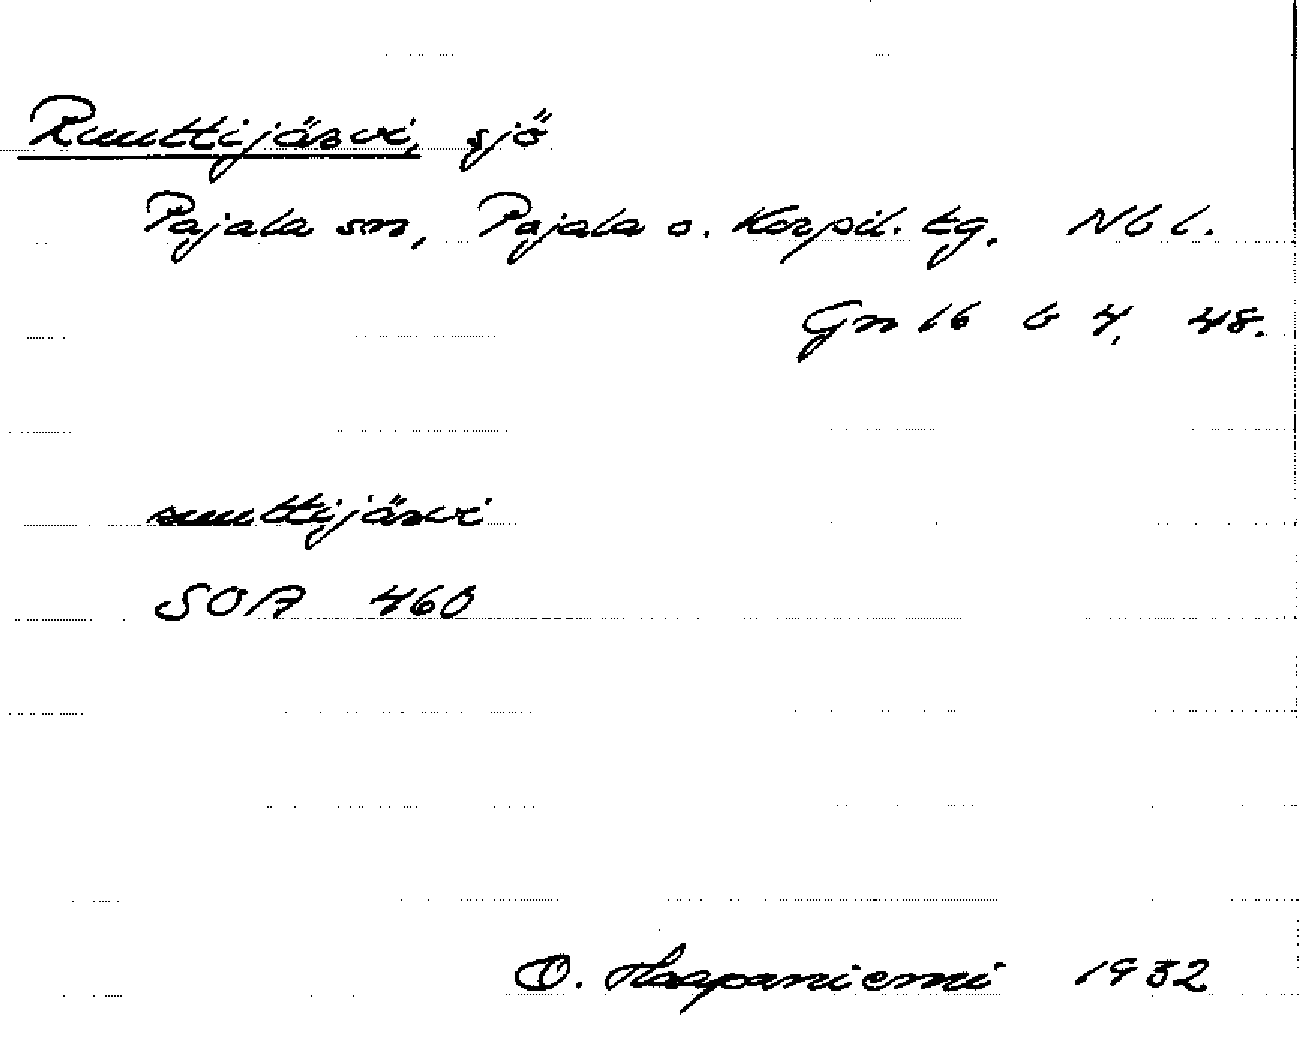 Ruuttijärvi, sjö
Pajala sn, Pajala o. Korpil. tg. Nb l.
Gn 16 b 4, 48.
ruuttijärvi
SOA 460
O. Haapaniemi 1932